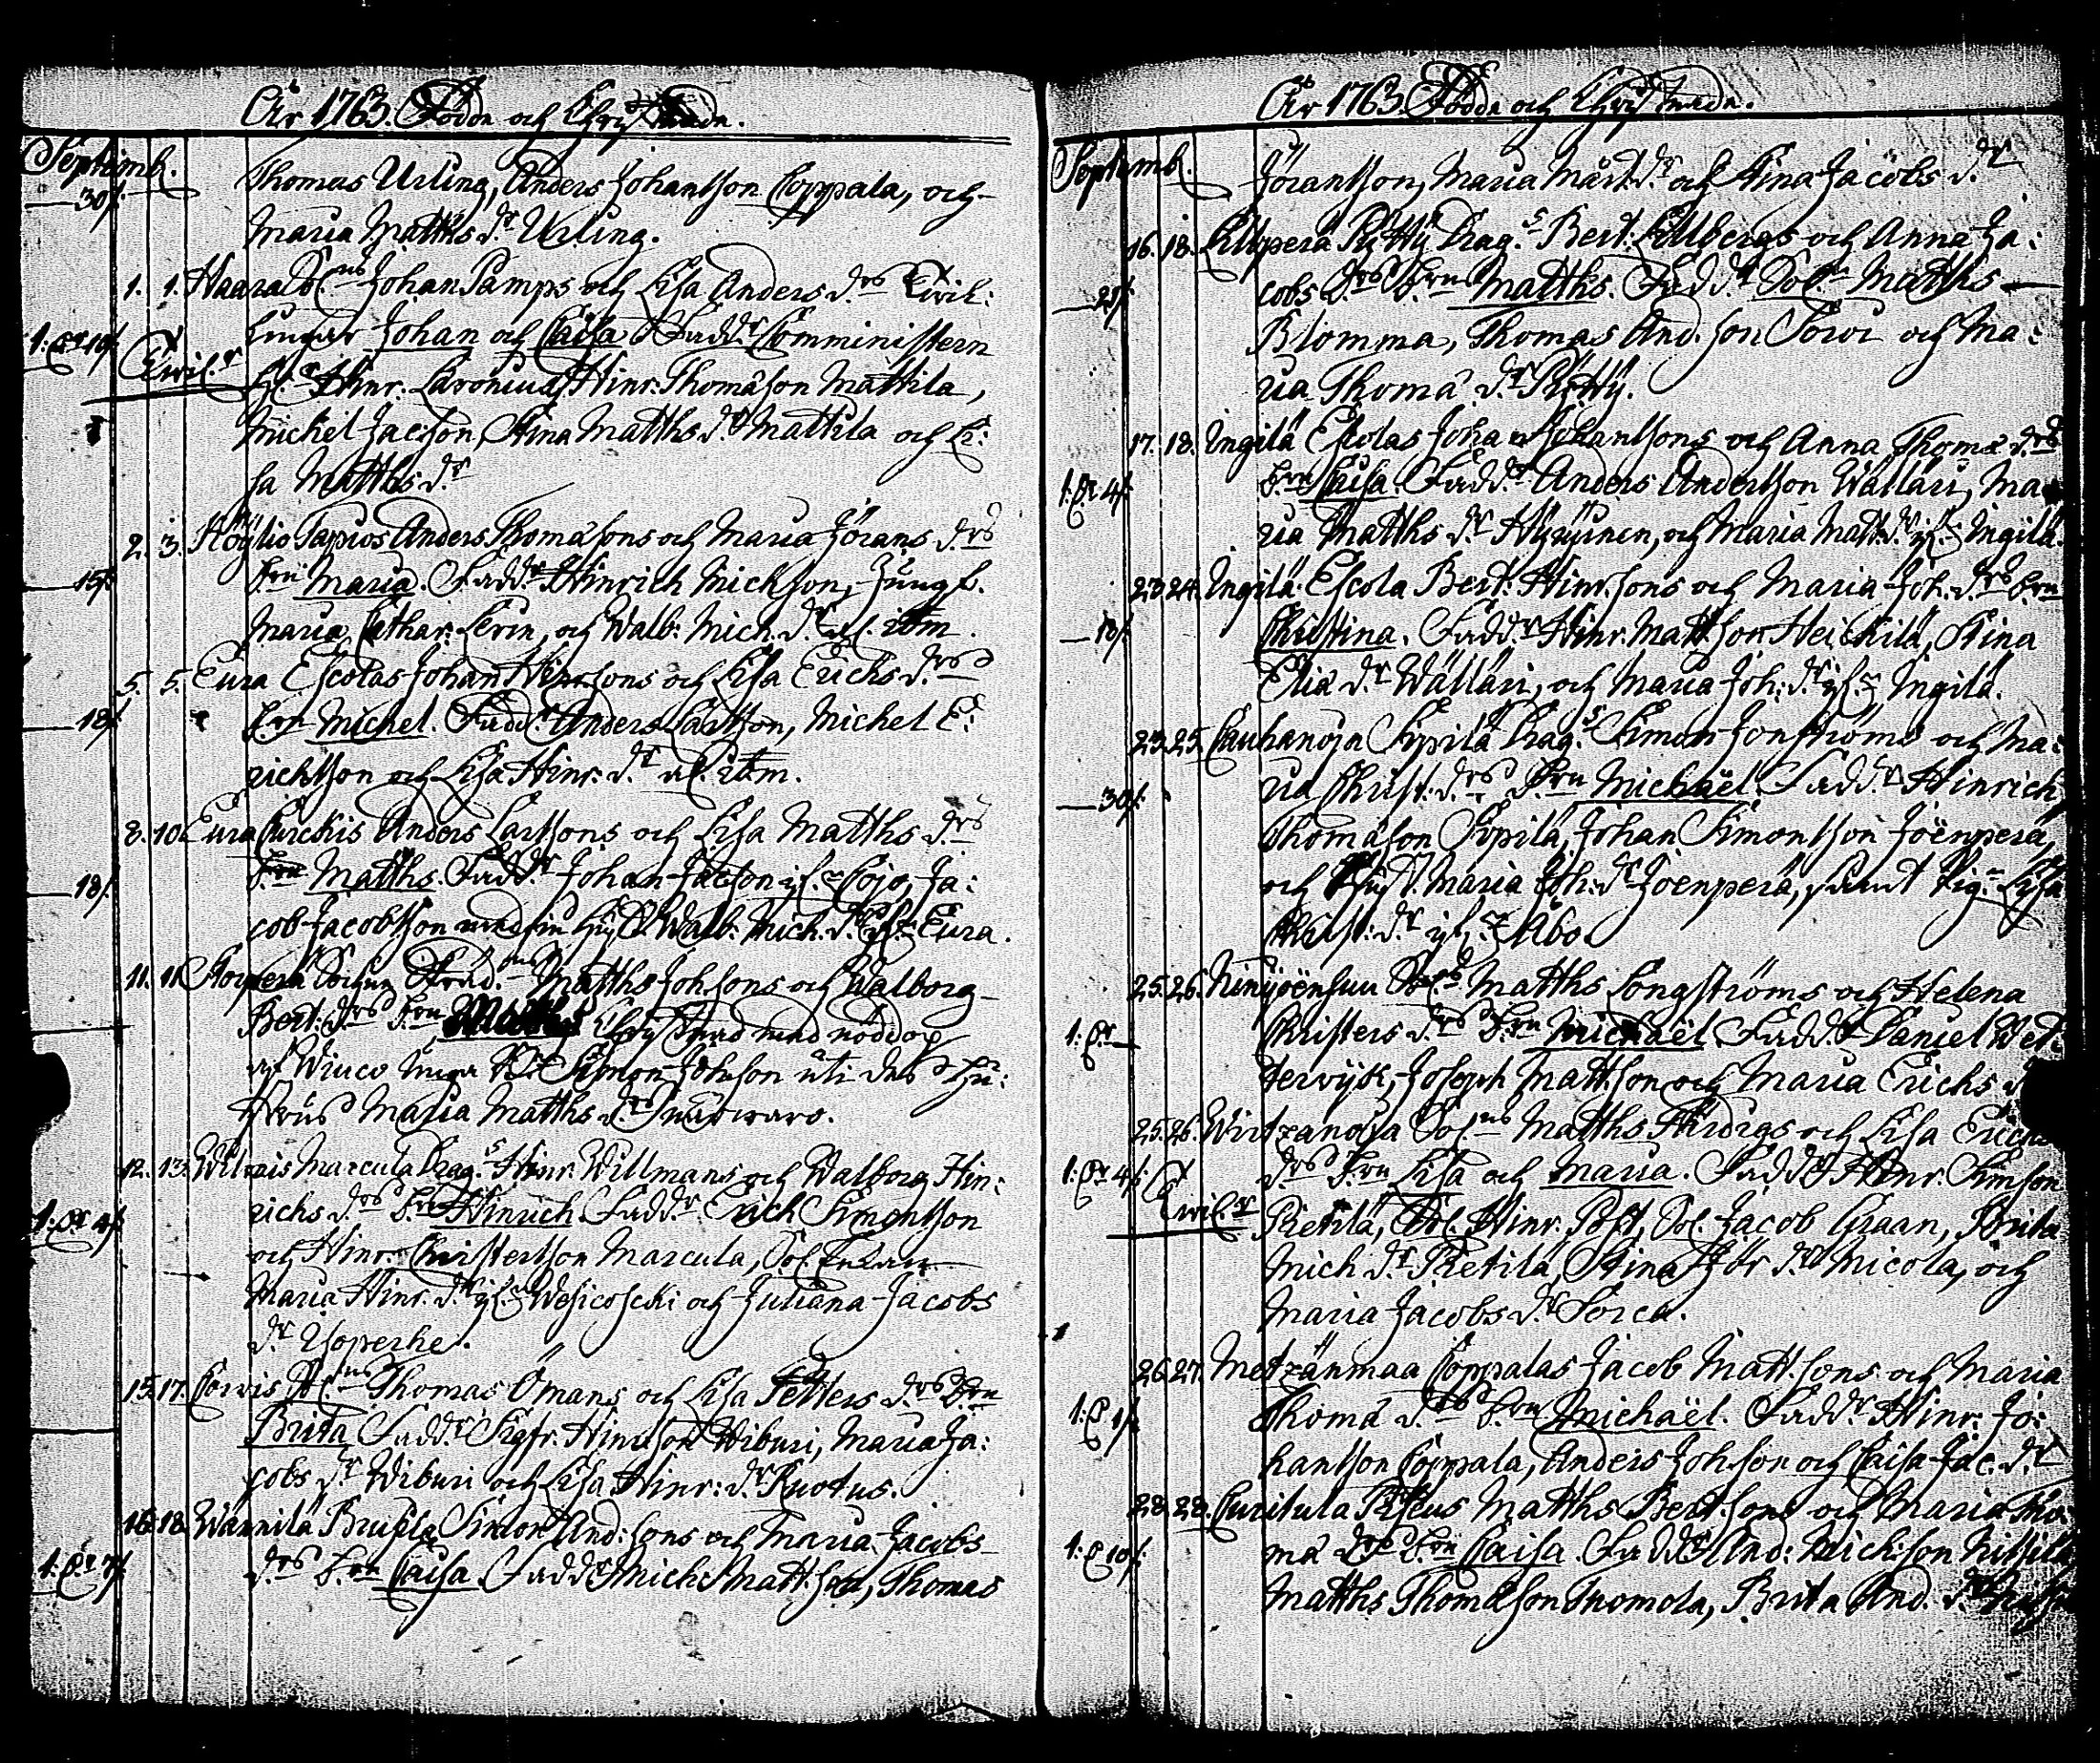 År 1763. Födde och Christnade.
Septemb.
30/. Thomas Urling, Anders Johansson Coppala, och
Maria Matths d:r Urling.
1. 1. Haara Sol:ns Johan Pamps och Lisa Anders d:rs Twil:
1: Pr 10/. Twil:r lingar Johan och Caisa Fadd:r Comministern
H:r Hinr. Laronius, Hinr: Thomason Mattila,
Michel Jacson, Stina Matths d:r Mattila och Li:
sa Matths d:r
2. 3. Köyliö Tapios Anders Thomasons och Maria Jörans d:rs
15/. b:rn Maria. Fadd:r Hinrich Mickson, Jungf.
Maria Cathar: Lerin, och Walb: Mich. d:r itm.
5. 5. Eura Escolas Johan Hinrsons och Lisa Erichs d:rs
18/. b:rn Michel. Fadd:r Anders Larsson, Michel E:
richson och Lisa Hinr: d:r itm.
8. 10. Eura Curckis Anders Larssons och Lisa Matths d:rs
18/. b:rn Matths. Fadd:r Johan Jacson Cojo, Ja:
cob Jacobsson med sin Walb: Mich. d:r Eura.
11. 11. Matths Johsons och Walborg
Bert: d:rs b:rn Matths Christnad med nöddop
af Simon Johson uti des
Maria Matths d:rs närwaro.
12. 13. Marcula Drag:s Hinr. Willmans och Walborg Hin:
1: Pr 4/. richs d:rs b:rn Hinrich. Fadd:r Erich Simontson
och Hinr: Christertson Marcula, Sol.
Maria Hinr. d:r Wesicoscki och Juliana Jacobs
d:r
15. 17. Cowis Sol:ns Thomas Ömans och Lisa Petters d:rs b:rn
Brita Fadd:r Sigfr. Hinrson Wiburi, Maria Ja:
cobs d:r Wiburi och Lisa Hinr: d:r Ruotus.
16. 18. Wännilä Simon And:sons och Maria Jacobs
1: Pr 7/. d:rs b:rn Caisa. Fadd:r Mich: Mattson, Thomas
År 1763. Födde och Christnade.
Septemb.
Jörantson, Maria Märt. d:r och Stina Jacobs d:r
16. 18. Pytty Drag:s Bert: Lillbergs och Anna Ja:
cobs d:rs b:rn Matths. Fadd:r Sol:n Matths
Blomma, Thomas And. son Sowi och Ma:
ria Thoma d:r Pytty.
17. 18. Ingilä Escolas Joha Johantsons och Anna Thoma d:rs
1: Pr 4/. b:rn Caisa. Fadd:r Anders Andersson Wällari, Ma
ria Matths d:r, och Maria Matt. d:r Ingilä.
23. 24. Ingilä Escola Bert: Hinr.sons och Maria Joh. d:rs b:rn
18/. Christina. Fadd:r Hinr. Mattson Heickilä, Stina
Elia d:r Wällari, och Maria Joh: d:r Ingilä.
23. 25. Cauhanoja Sepilä Drag:s Simon Jonströms och Ma:
30/. ria Christ: d:rs b:rn Michaël. Fadd:r Hinrich
Thomason Sepilä, Johan Simontson Joënperä,
och Maria Joh: d:r Joenperä, samt Pig:n Lisa
Christ: d:r Åbo.
25. 26. Ninijoënsuu Sol:ns Matths Longströms och Helena
1: Pr Christers d:rs b:rn Michaël. Fadd:r Daniel Wet:
tervijk, Joseph Mattson och Maria Erichs
25. 26. Wirtzanoja Sol:ns Matths Färdigs och Lisa Erichs
1: Pr 4/. Twil:r d:rs b:rn Lisa och Maria. Fadd:r Hinr. Simson
Pietilä, Sol. Hinr. Post, Sol. Jacob Graan, Brita
Mich d:r Pietilä, Stina Jör d:r Micola, och
Maria Jacobs d:r Sorca.
26. 27. Metzänmaa Coppalas Jacob Matt.sons och Maria
1: P 1/. Thoma d:rs b:rn Michaël. Fadd:r Hinr: Jo:
hantson Coppala, Anders Johson och Caisa Jac. d:r
28. 28. Curitula Matths Bert.sons och Maria Tho
1: P 10/. ma d:rs b:rn Caisa. Fadd:r And: Mich:son
Matths Thomason Tuomola, Brita And. d:r